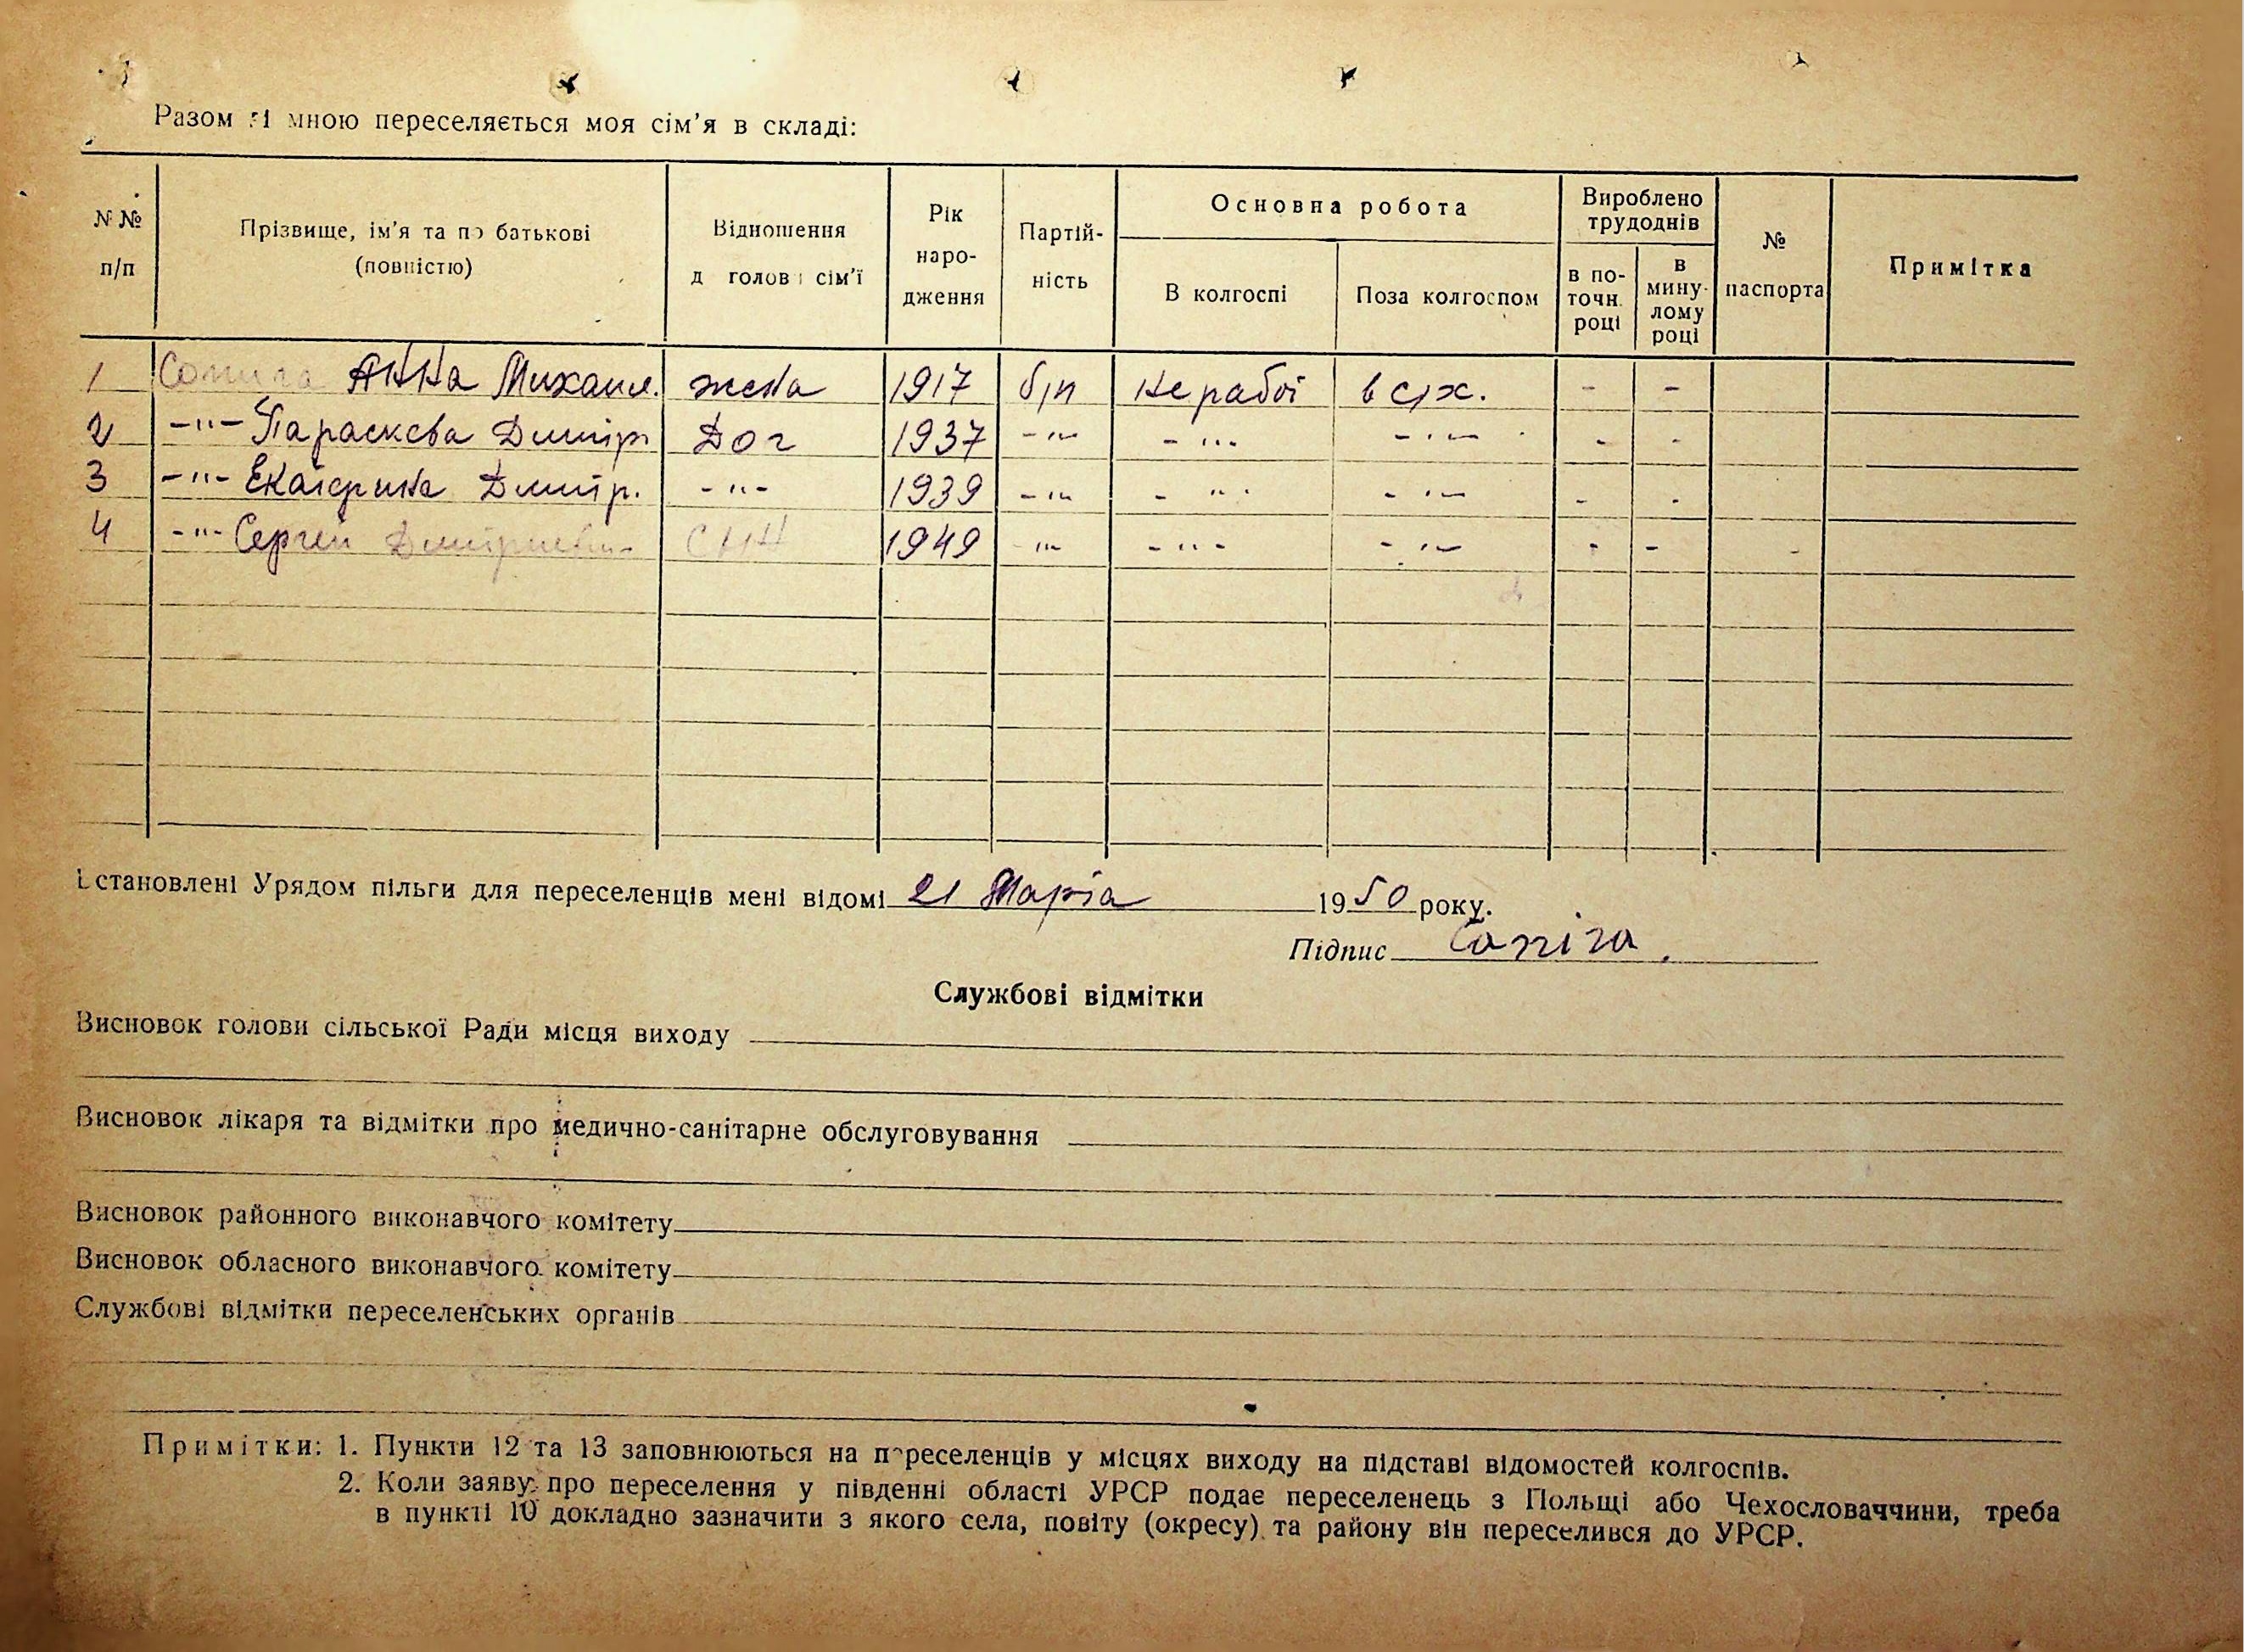 Разом зі мною переселяється моя сім'я в складі:
N№ п/п
Прізвище, ім'я та по батькові (повністю)
Відношення д голов і сім'ї
Рік народження
Партійність
Основна робота
В колгоспі
Поза колгоспом
Вироблено трудоднів
в поточн. році
в минулому році
№ паспорта
Примітка
1 Анна Михаил. жена 1917 б/п не работ в с/х. - -
2 -"- Параскева Дмитр Доч 1937 -"- -"- -"- - -
3 -"- Екатерина Дмитр. -"- 1939 -"- -"- -"- - -
4 -"- Сергей Дмитриевич сын 1949 -"- -"- -"- - - -
Встановлені Урядом пільги для переселенців мені відомі 21 Марта 1950 року.
Підпис Сапіга.
Службові відмітки
Висновок голови сільської Ради місця виходу
Висновок лікаря та відмітки про медично-санітарне обслуговування
Висновок районного виконавчого комітету
Висновок обласного виконавчого комітету
Службові відмітки переселенських органів
Примітки: 1. Пункти 12 та 13 заповнюються на переселенців у місцях виходу на підставі відомостей колгоспів.
2. Коли заяву про переселення у південні області УРСР подає переселенець з Польщі або Чехословаччини, треба
в пункті 10 докладно зазначити з якого села, повіту (окресу) та району він переселився до УРСР.